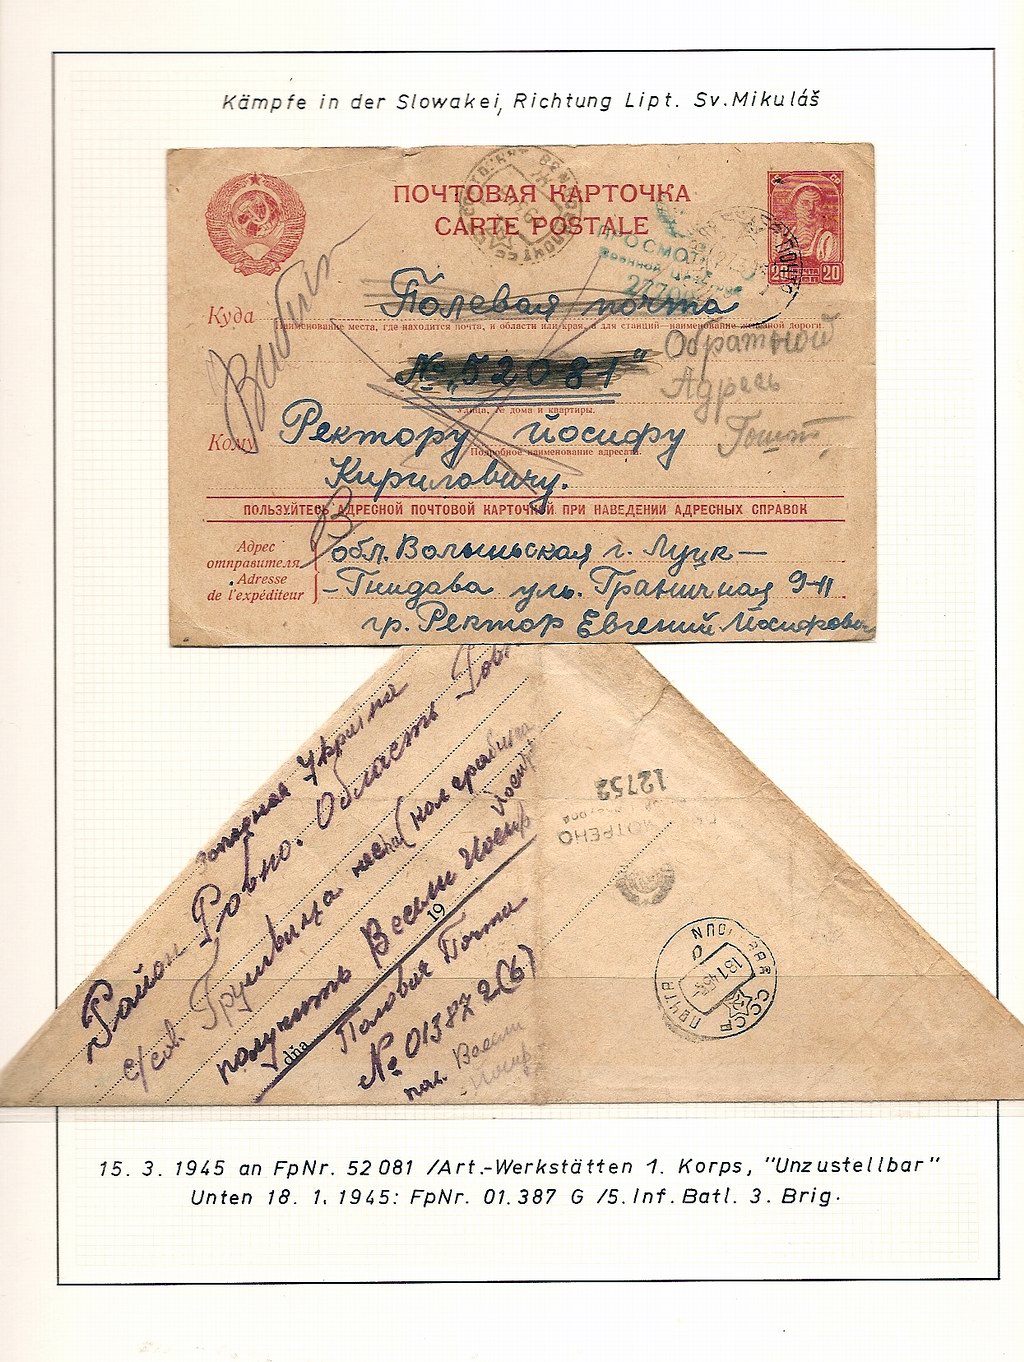 Kämpfe in der Slowakei, Richtung Lipt. Sv. Mikuláš
ПОЧТОВАЯ КАРТОЧКА
CARTE POSTALE
ПРОСМОТ
Военной
277
ПОЧТА
20 20
Куда
Полевая почта
Наименование места, где находится почта, и области или края, а для станций—наименование железной дороги.
№ „52081"
Обратной
Адресь
Улица, № дома и квартиры.
Кому
Ректору Йосифу
Подробное наименование адресата.
Кириловичу.
Вибит
ПОЛЬЗУЙТЕСЬ АДРЕСНОЙ ПОЧТОВОЙ КАРТОЧКОЙ ПРИ НАВЕДЕНИИ АДРЕСНЫХ СПРАВОК
Адрес
отправителя
Adresse
de l'expéditeur
обл. Волыньская г. Луцк —
– Гнидава ул. Граничная 9-11
гр. Ректор Евгений Йосифович
Западная Україна
Район Ровно. Область Ровн
с/сов. Грушвица
получить Весели Йосир
dňa 19
Полович Почта
№ 01387 2(б)
пол. Весели
Йосир
12752
МОТРЕНО
СССР ПОЧТА
18 1 45
15. 3. 1945 an FpNr. 52081 /Art.-Werkstätten 1. Korps, "Unzustellbar"
Unten 18. 1. 1945: FpNr. 01.387 G /5. Inf. Batl. 3. Brig.